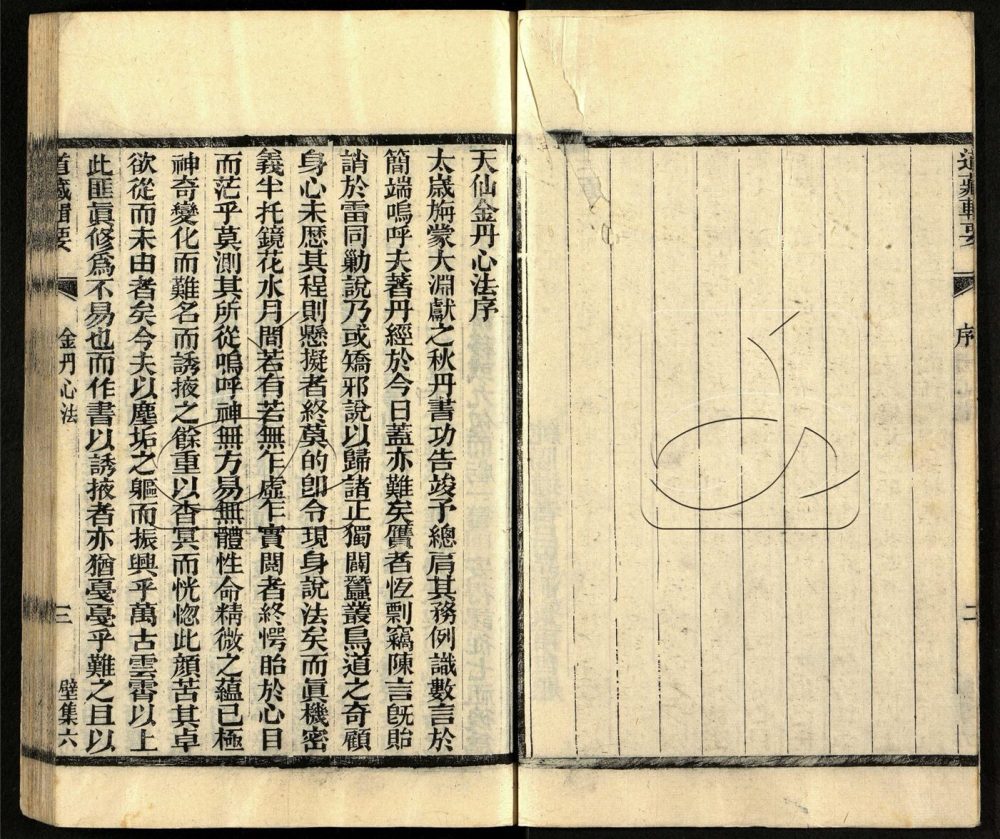 道藏輯要
序
二
天仙金丹心法序
太歲旃蒙大淵獻之秋丹書功告竣予總肩其務例識數言於
簡端嗚呼夫著丹經於今日蓋亦難矣贋者恆剽竊陳言旣貽
誚於雷同勦說乃或矯邪說以歸諸正獨闢蠶叢鳥道之奇顧
身心未歷其程則懸擬者終莫的卽令現身說法矣而眞機密
義半托鏡花水月間若有若無乍虛乍實閱者終愕眙於心目
而茫乎莫測其所從嗚呼神無方易無體性命精微之蘊已極
神奇變化而難名而誘掖之餘重以杳冥而恍惚此顏苦其卓
欲從而未由者矣今夫以塵垢之軀而振興乎萬古雲霄以上
此匪眞修爲不易也而作書以誘掖者亦猶戞戞乎難之且以
道藏輯要
金丹心法
三
壁集六